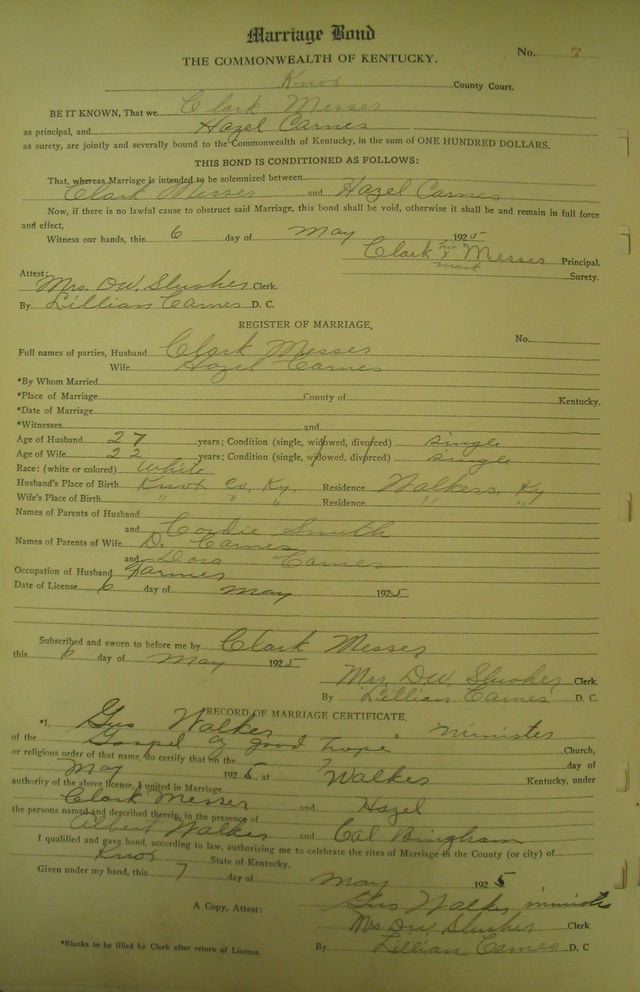 Marriage Bond
THE COMMONWEALTH OF KENTUCKY.
No. 7
Knox County Court.
BE IT KNOWN, That we Clark Messer
as principal, and Hazel Carnes
as surety, are jointly and severally bound to the Commonwealth of Kentucky, in the sum of ONE HUNDRED DOLLARS.
THIS BOND IS CONDITIONED AS FOLLOWS:
That, whereas Marriage is intended to be solemnized between
Clark Messer and Hazel Carnes
Now, if there is no lawful cause to obstruct said Marriage, this bond shall be void, otherwise it shall be and remain in full force
and effect,
Witness our hands, this 6 day of May 1925
Clark his x mark Messer Principal.
Surety.
Attest:
Mrs. D.W. Slusher Clerk.
By Lillian Carnes D. C.
REGISTER OF MARRIAGE,
No.
Full names of parties, Husband Clark Messer
Wife Hazel Carnes
*By Whom Married
*Place of Marriage County of Kentucky.
*Date of Marriage
*Witnesses and
Age of Husband 27 years; Condition (single, widowed, divorced) single
Age of Wife 22 years; Condition (single, widowed, divorced) single
Race: (white or colored) White
Husband's Place of Birth Knox Co, Ky. Residence Walkers, Ky
Wife's Place of Birth " " " Residence " "
Names of Parents of Husband
and Cordie Smith
Names of Parents of Wife D. Carnes
and Dora Carnes
Occupation of Husband Farmer
Date of License 6 day of May 1925
Subscribed and sworn to before me by Clark Messer
this 6 day of May 1925
Mrs. D.W. Slusher Clerk.
By Lillian Carnes D. C.
RECORD OF MARRIAGE CERTIFICATE,
*I, Gus Walker a minister
of the Gospel of good hope Church,
or religious order of that name, do certify that on the 7 day of
May 1925, at Walker Kentucky, under
authority of the above license, I united in Marriage
Clark Messer and Hazel
the persons named and described therein, in the presence of
Albert Walker and Cal Bingham
I qualified and gave bond, according to law, authorizing me to celebrate the rites of Marriage in the County (or city) of
Knox State of Kentucky.
Given under my hand, this 7 day of May 1925
Gus Walker minister
A Copy, Attest: Mrs. D.W. Slusher Clerk
*Blanks to be filled by Clerk after return of License. By Lillian Carnes D. C